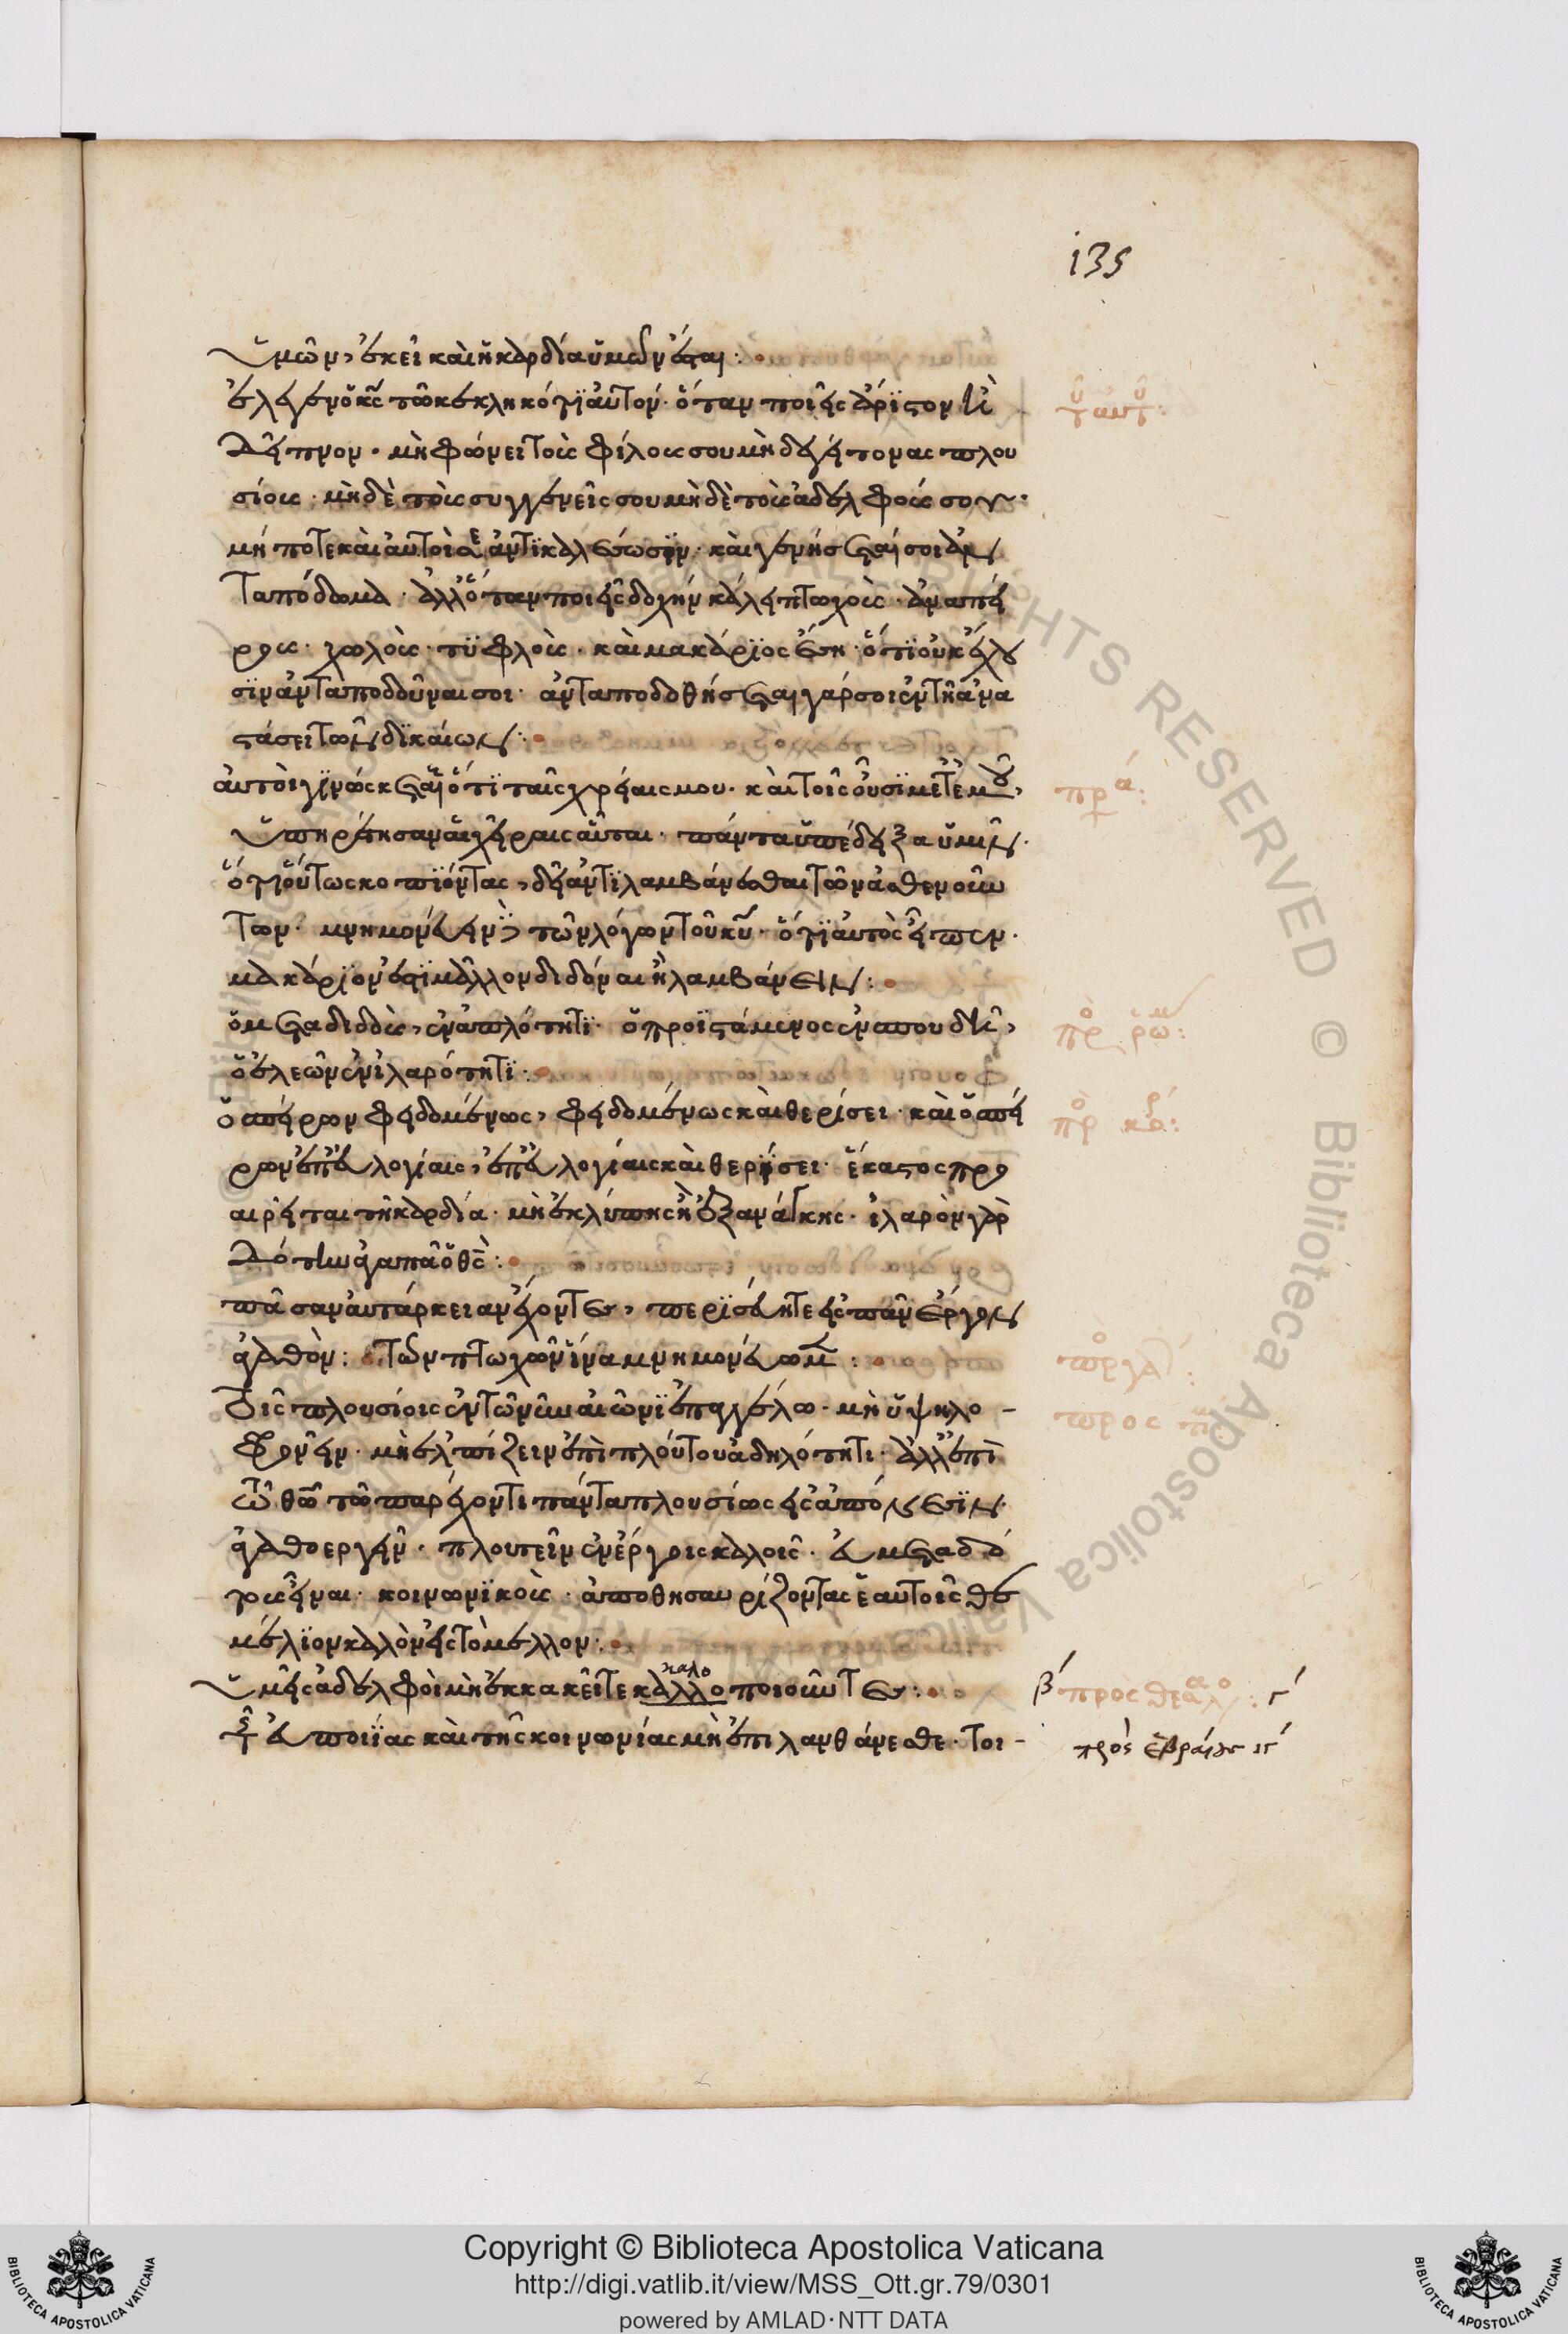 135
ὑμῶν, ἐκεῖ καὶ ἡ καρδία ὑμῶν ἔσται:
ἔλεγεν ὁ κ̅ς̅ τῷ κεκληκότι αὐτόν· ὅταν ποιῇς ἄριστον ἢ
δεῖπνον· μὴ φώνει τοὺς φίλους σου μὴ δὲ γείτονας πλου
σίους· μὴ δὲ τοὺς συγγενεῖς σου μὴ δὲ τοὺς ἀδελφούς σου·
μή ποτε καὶ αὐτοί σε ἀντικαλέσωσιν· καὶ γενήσεταί σοι ἀν
ταπόδομα· ἀλλ' ὅταν ποιῇς δοχὴν κάλει πτωχοὺς· ἀναπεί
ρους· χωλοὺς· τυφλοὺς· καὶ μακάριος ἔσῃ· ὅτι οὐκ ἔχου
σιν ἀνταποδοῦναι σοι· ἀνταποδοθήσεται γάρ σοι ἐν τῇ ἀνα
στάσει τῶν δικαίων:
αὐτοὶ γινώσκεται ὅτι ταῖς χρείαις μου· καὶ τοῖς οὖσι μετ' ἐμοῦ,
ὑπηρέτησαν αἱ χεῖραις αὗται· πάντα ὑπέδειξα ὑμῖν·
ὅτι οὕτως κοπιόντας, δεῖ ἀντιλαμβάνεσθαι τῶν ἀσθενούν
των· μνημονεύειν τῶν λόγων τοῦ κ̅υ̅· ὅτι αὐτὸς εἶπεν·
μακάριον ἐστὶ μᾶλλον διδόναι ἢ λαμβάνειν:
ὁ μεταδιδοὺς, ἐν ἁπλότητι· ὁ προϊστάμενος ἐν σπουδῇ,
ὁ ἐλεῶν ἐν ἱλαρότητι:
ὁ σπείρων φειδομένως, φειδομένως καὶ θερίσει· καὶ ὁ σπεί
ρων ἐπ' εὐλογίαις, ἐπ' εὐλογίαις καὶ θερίσει· ἕκαστος προ
αιρεῖται τῇ καρδία· μὴ ἐκ λύπης ἢ ἐξ ἀνάγκης· ἱλαρὸν γὰρ
δότην ἀγαπᾶ ὁ θ̅ς̅:
πᾶσαν αὐτάρκειαν ἔχοντες, περισεύητε εἰς πᾶν ἔργον
ἀγαθὸν: τῶν πτωχῶν ἵνα μνημονεύωμεν:
τοῖς πλουσίοις ἐν τῶ νῦν αἰῶνι παραγγέλω· μὴ ὑψηλο-
φρονεῖν· μὴ ἐλπίζειν ἐπὶ πλούτου ἀδηλότητι· ἀλλ' ἐπὶ
τῶ θ̅ῶ̅ τῶ παρέχοντι πάντα πλουσίως εἰς ἀπόλαυσιν·
ἀγαθοεργεῖν· πλουτεῖν ἐν ἔργοις καλοῖς· εὐμεταδό
τους εἶναι· κοινωνικοὺς· ἀποθησαυρίζοντας ἑαυτοῖς θε
μέλιον καλὸν εἰς τὸ μέλλον:
ὑμεῖς ἀδελφοὶ μὴ ἐκκακεῖτε καλλοποιοῦντες:
καλο
τῆς εὐποιΐας καὶ τῆς κοινωνίας μὴ ἐπιλανθάνεσθε· τοι-
τοῦ αυτοῦ:
πρά:
πρὸ ρωμ:
πρὸ κορ:
πρὸ γα:
προς τι
β' προς θεσαλο: γ'
πρὸς ἑβραίους ιγ'
Copyright © Biblioteca Apostolica Vaticana
http://digi.vatlib.it/view/MSS_Ott.gr.79/0301
powered by AMLAD·NTT DATA